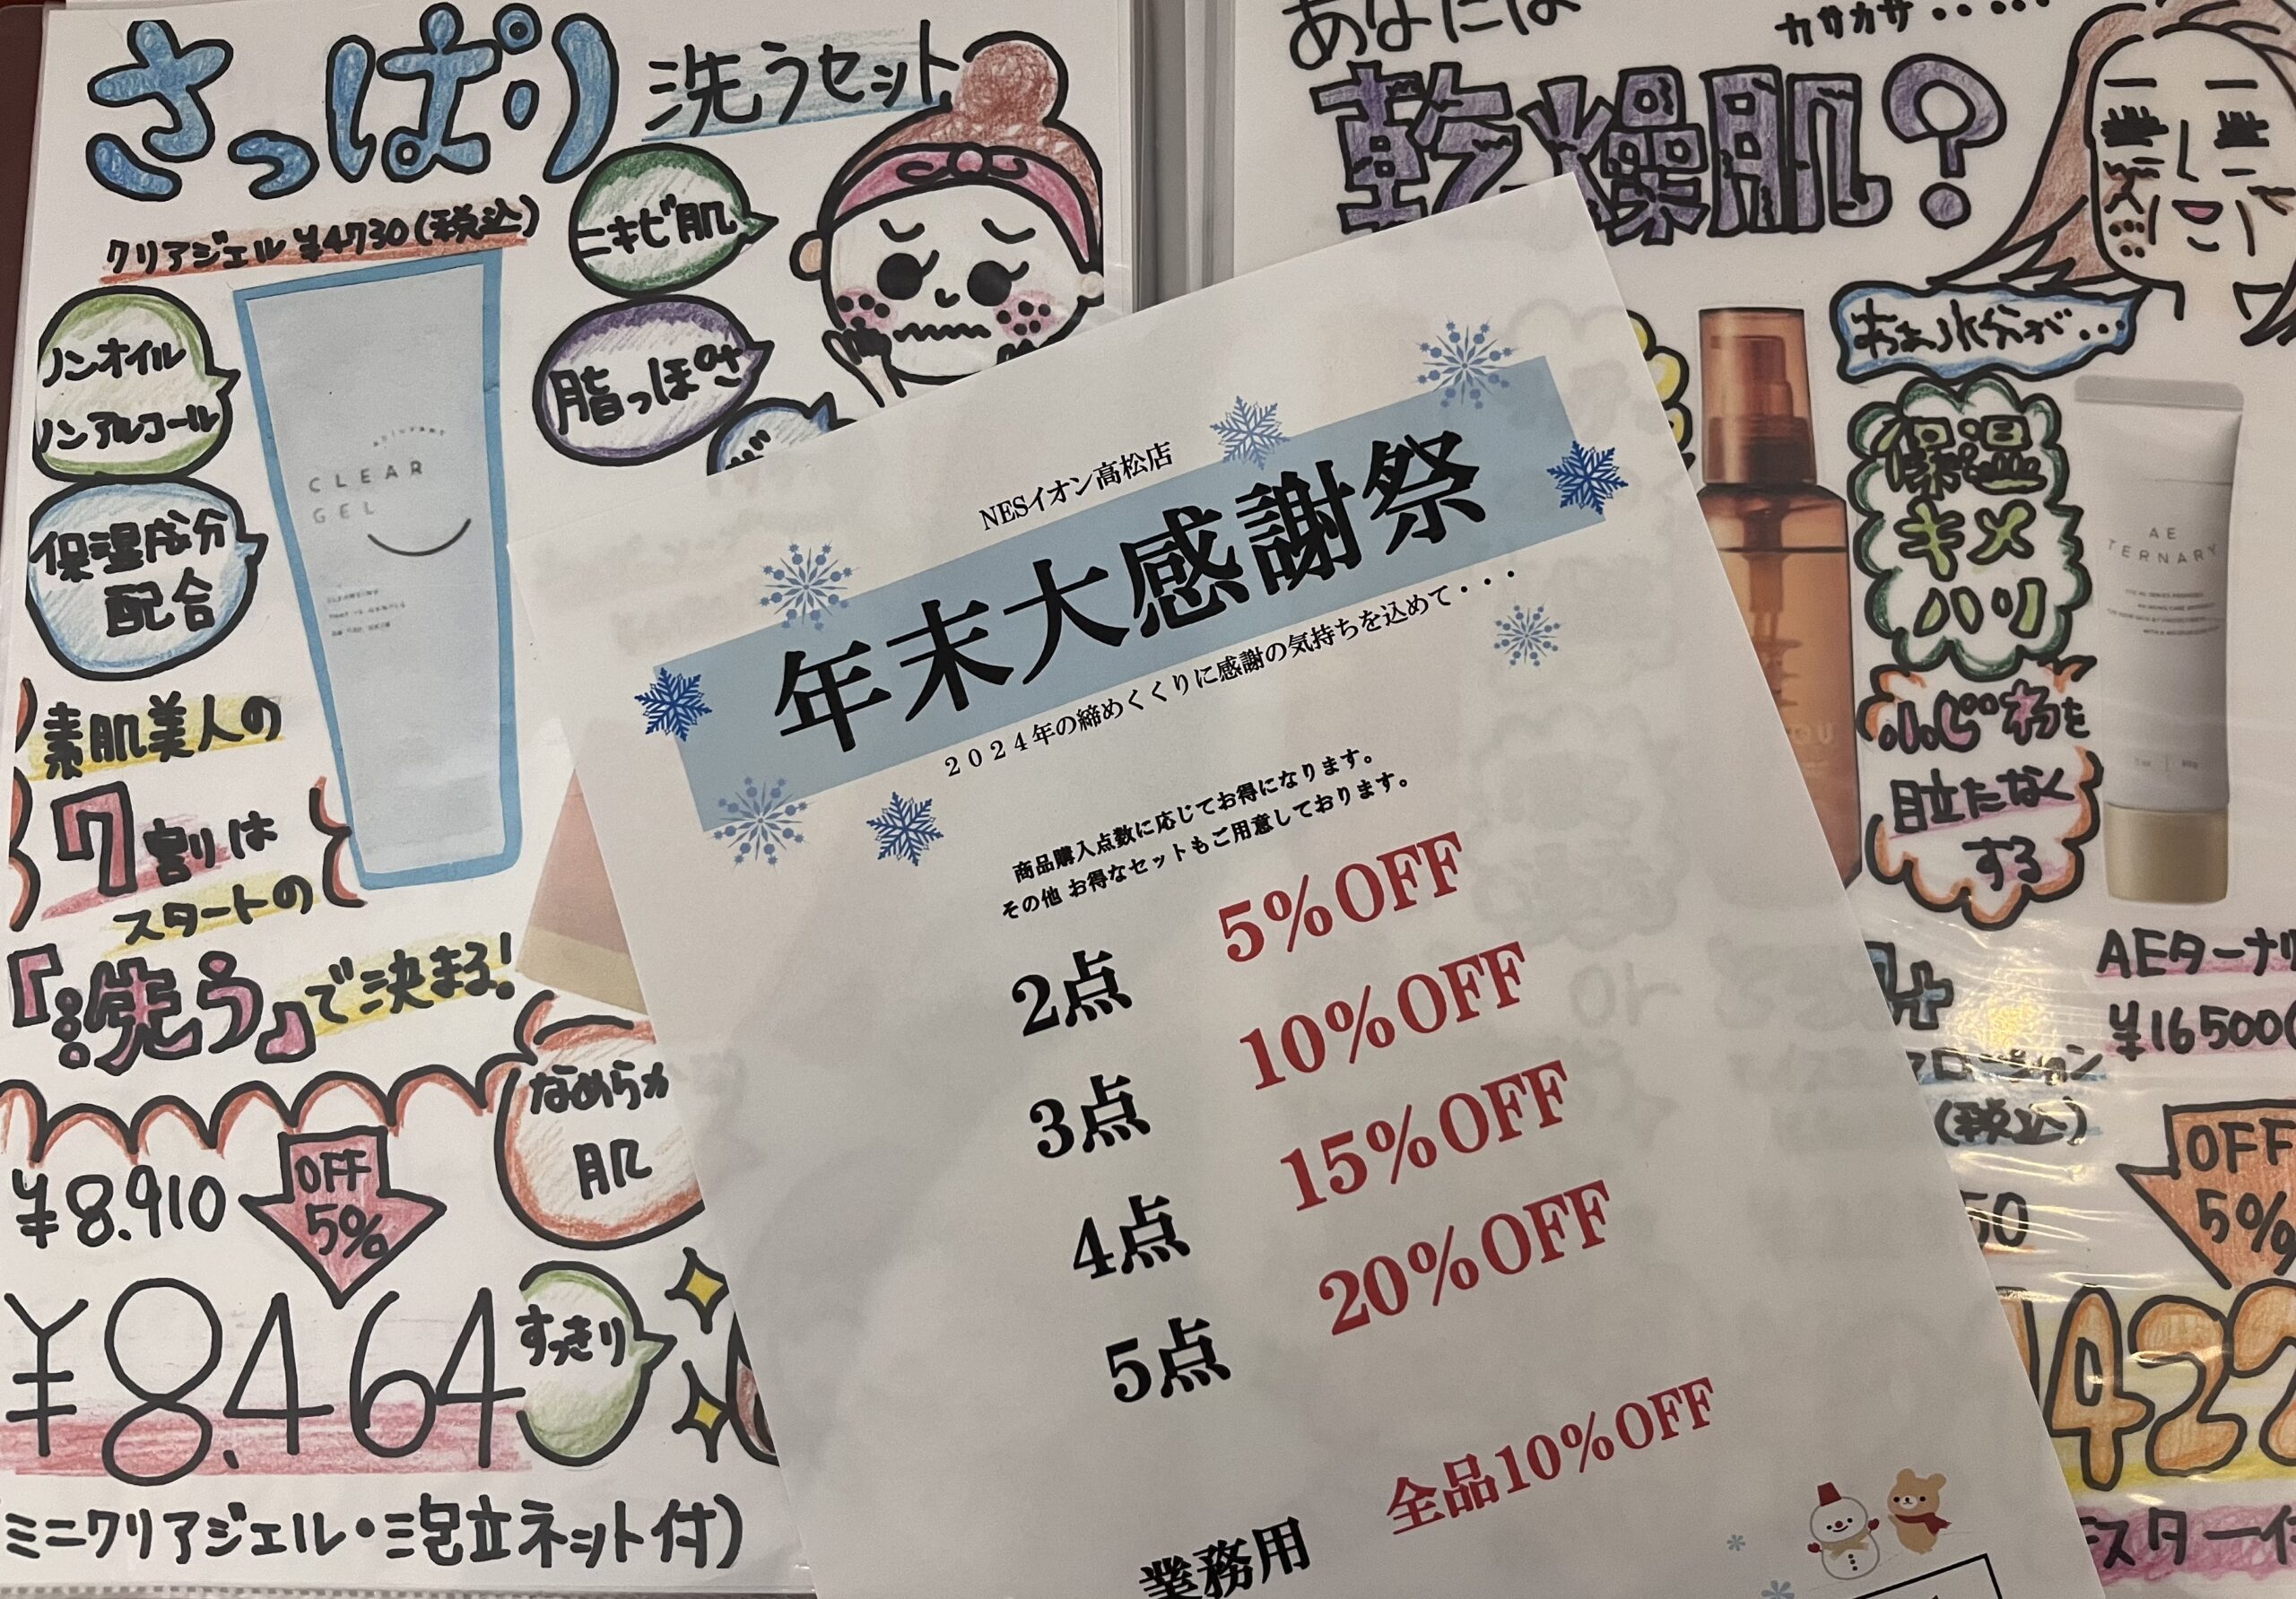 さっぱり 洗うセット
クリアジェル ¥4730(税込)
ニキビ肌
脂っぽさ
ノンオイル
ノンアルコール
保湿成分
配合
CLEAR
GEL
素肌美人の
7割は
スタートの
『洗う』で決まる!
なめらか
肌
¥8.910
OFF
5%
¥8.464
すっきり
ミニクリアジェル・泡立ネット付)
あなたは
カサカサ・・・・・
乾燥肌?
水分が・・・
保湿
キメ
ハリ
小じわを
目立たなく
する
AE
TERNARY
AEターナリ
¥16500(
ローション
(税込)
50
OFF
5%
422
スター付
NESイオン高松店
年末大感謝祭
2024年の締めくくりに感謝の気持ちを込めて・・・
商品購入点数に応じてお得になります。
その他 お得なセットもご用意しております。
2点 5%OFF
3点 10%OFF
4点 15%OFF
5点 20%OFF
業務用 全品10%OFF